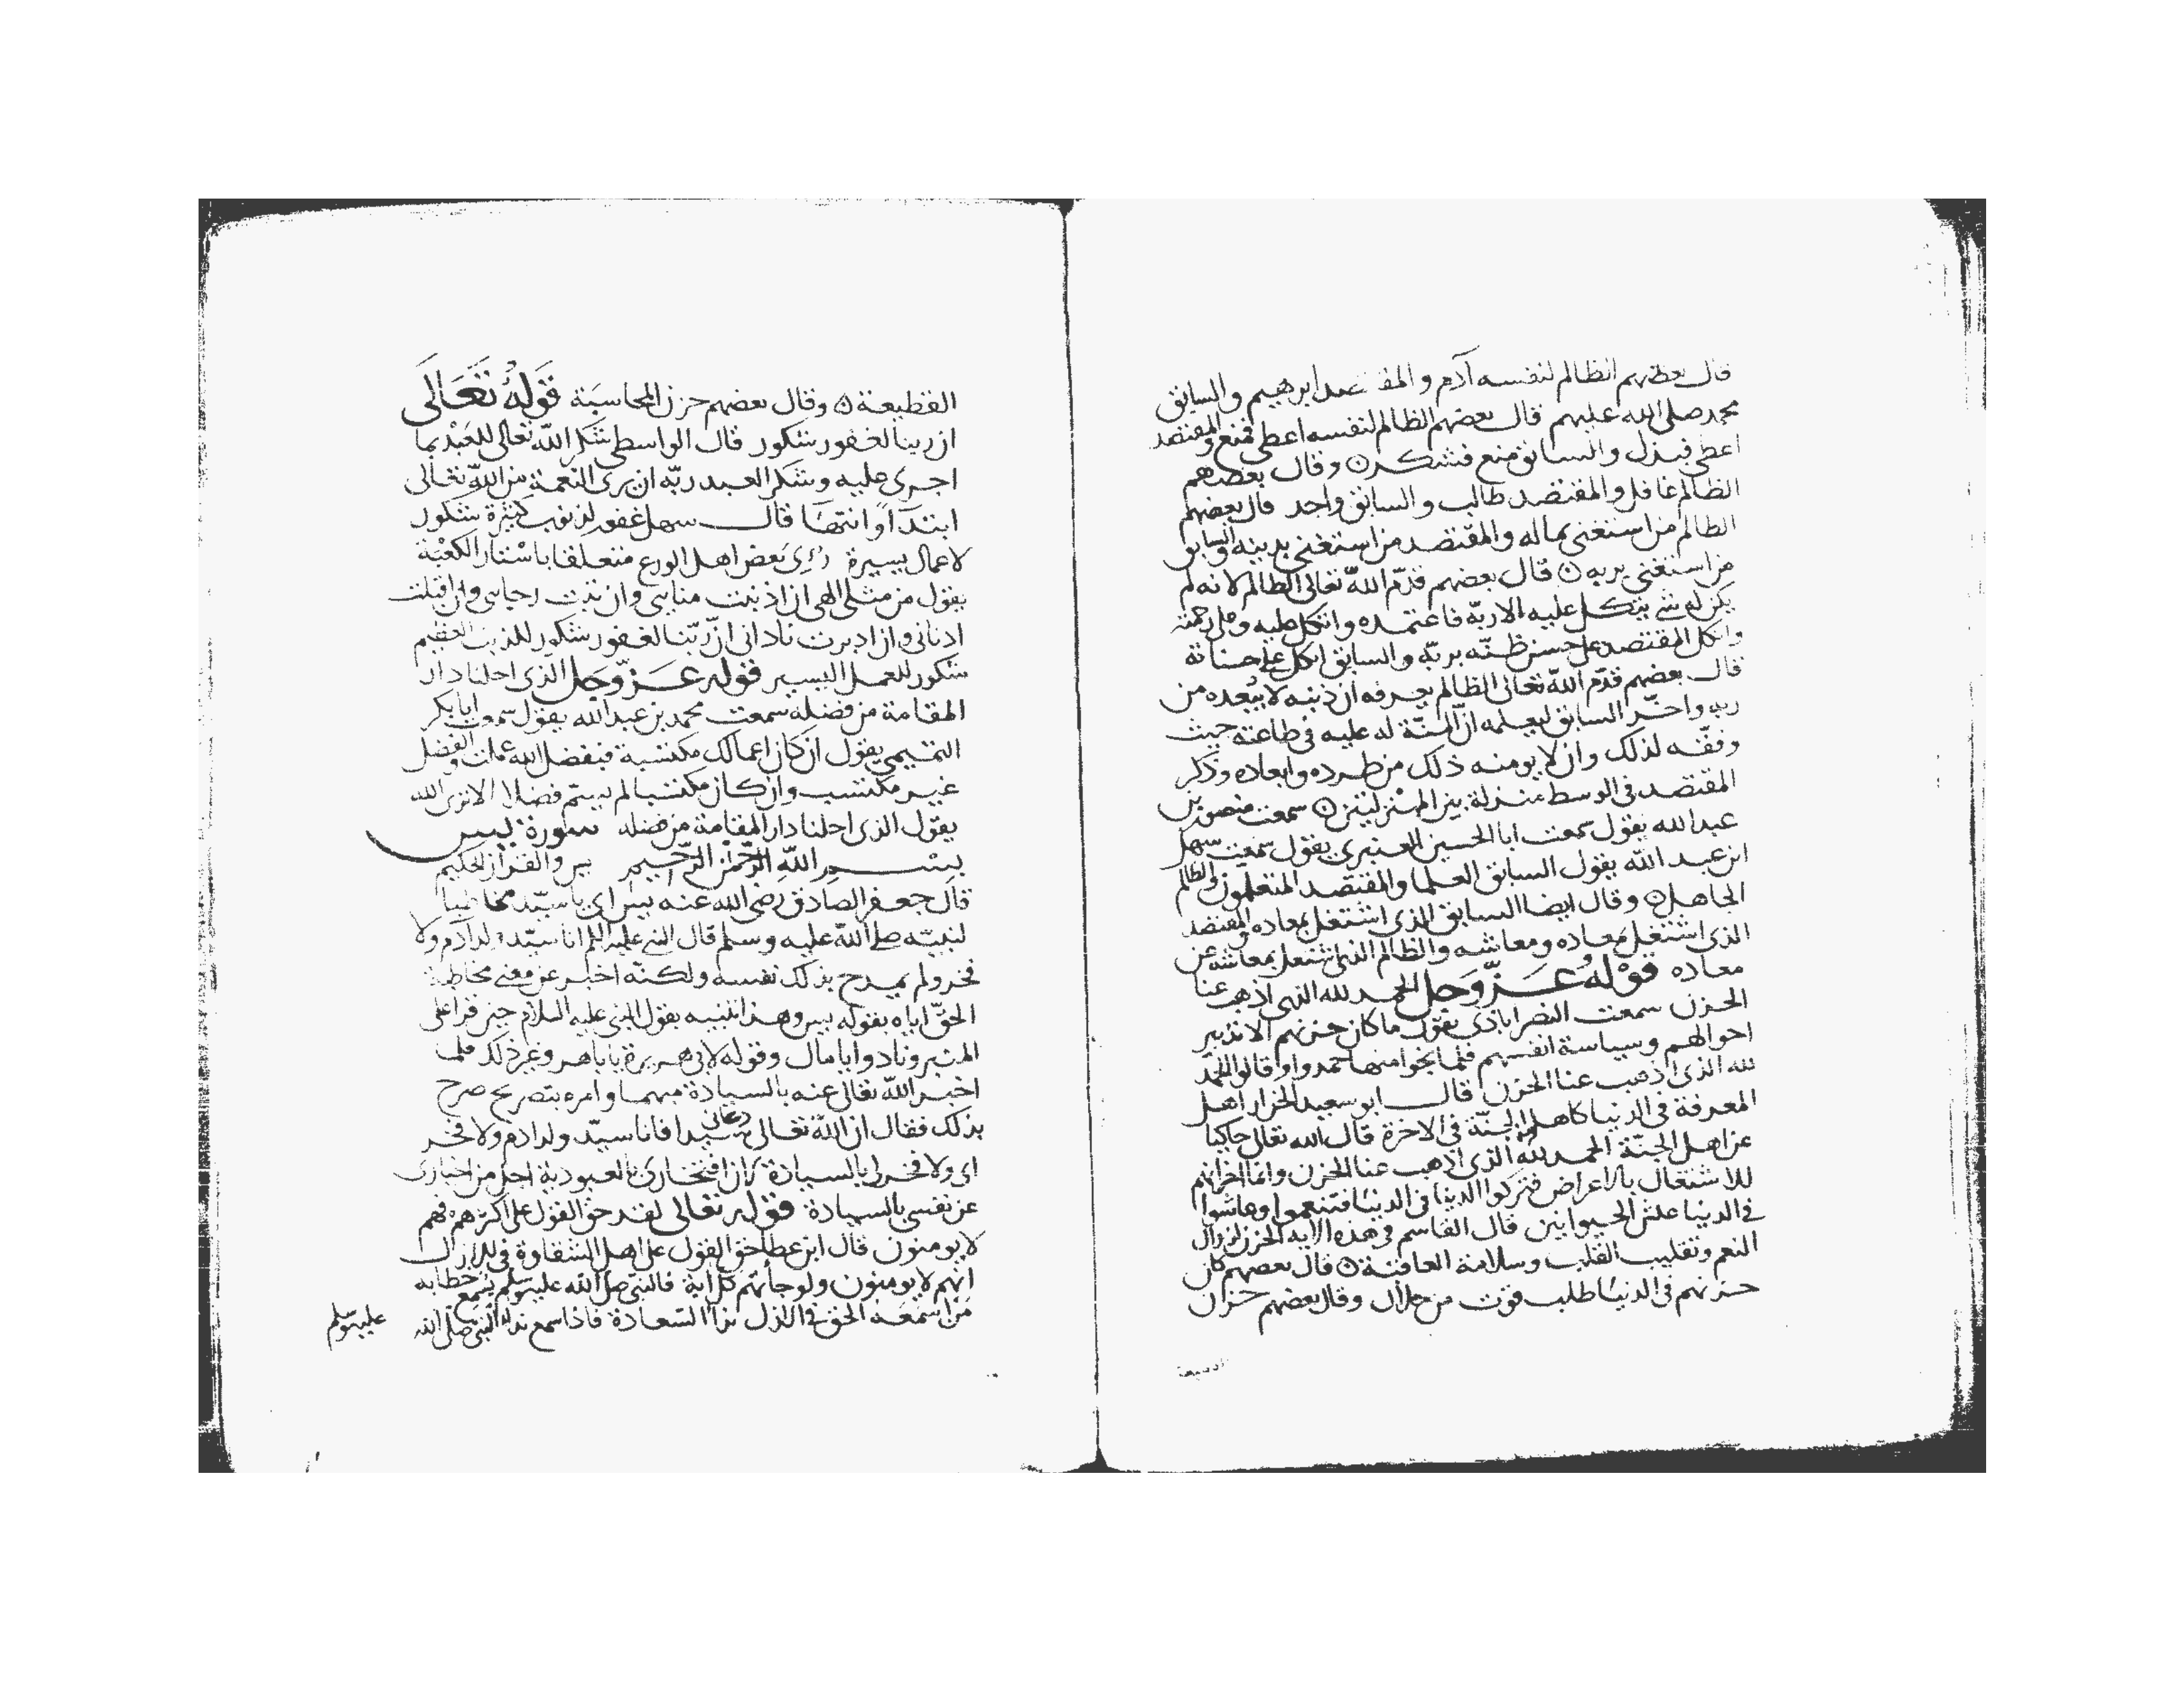 قال بعضهم الظالم لنفسه آدم والمقتصد ابرهيم والسابق
محمد صلى الله عليهم قال بعضهم الظالم لنفسه اعطى فمنع والمقتصد
اعطى فبذل والسابق منع فشكر ۞ وقال بعضهم
الظالم غافل والمقتصد طالب والسابق واجد قال بعضهم
الظالم من استغنى بماله والمقتصد من استغنى بدينه والسابق
من استغنى بربه ۞ قال بعضهم قدّم الله تعالى الظالم لانه لم
يكن له شئ يتكل عليه الا ربّه فاعتمده واتكل عليه وعلى رحمته
واتكل المقتصد على حسن ظنّه بربّه والسابق اتكل على حسناته
قال بعضهم قدّم الله تعالى الظالم يعرفه ان ذنبه لا يبعده من
ربه واخّر السابق ليعلمه انّ المنّة له عليه فى طاعته حيث
وفقّه لذلك وان لا يومنه ذلك من طرده وابعاده وذكر
المقتصد فى الوسط منزلة بين المنزلتين ۞ سمعت منصور بن
عبد الله يقول سمعت ابا الحسين العنبرى يقول سمعت سهل
ابن عبد الله يقول السابق العلما والمقتصد المتعلمون والظالم
الجاهل ۞ وقال ايضا السابق الذى اشتغل بمعاده والمقتصد
الذى اشتغل بمعاده ومعاشه والظالم الذى اشتغل بمعاشه عن
معاده قوله عزّ وجل الحمد لله الذى اذهب عنا
الحزن سمعت النصراباذى يقول ما كان حزنهم الا تدبير
احوالهم وسياسة انفسهم فلما نجوا منها حمدوا وقالوا الحمد
لله الذى اذهب عنا الحزن قال ابو سعيد الخراز اهل
المعرفة فى الدنيا كاهل الجنّة فى الاخرة قال الله تعالى حاكيا
عن اهل الجنّة الحمد لله الذى اذهب عنا الحزن وانما احزانهم
للاشتغال بالاعراض فتركوا الدنيا فى الدنيا فتنعموا وعاشوا
فى الدنيا عيش الحيوانين قال القاسم فى هذه الاية الحزن لزوال
النعم وتقليب القلب وسلامة العاقبة ۞ قال بعضهم كان
حزنهم فى الدنيا طلب قوت من حلال وقال بعضهم حزان
القطيعة ۞ وقال بعضهم حزن المحاسبة قوله تعالى
ان ربنا لغفور شكور قال الواسطى شكر الله تعالى للعبد بما
اجرى عليه وشكر العبد ربّه ان يرى النعمة من الله تعالى
ابتدآ وانتهآ قال سهل غفور لذنوب كثيرة شكور
لاعمال يسيرة رئى بعض اهل الورع متعلقا باستار الكعبة
يقول من مثلى الهى ان اذنبت منانى وان تبت رجانى وان اقبلت
ادنانى وان ادبرت نادانى انّ ربّنا لغفور شكور للذنب العظيم
شكور للعمل اليسير قوله عزّ وجل الذى احلنا دار
المقامة من فضله سمعت محمد بن عبد الله يقول سمعت ابا بكر
التميمى يقول ان كان اعمالك مكتسبة فبفضل الله عملت والفضل
غير مكتسب وان كان مكتسبا لم يسمّ فضلا الا ترى الله
يقول الذى احلنا دار المقامة من فضله سورة يس
بسم الله الرحمن الرحيم يس والقرآن الحكيم
قال جعفر الصادق رضى الله عنه يس اى يا سيّد مخاطبا
لنبيّه صلى الله عليه وسلم قال النبى عليه السلم انا سيّد ولد آدم ولا
فخر ولم يمدح بذلك نفسه ولكنّه اخبر عن معنى مخاطبة
الحقّ اياه بقوله يس وهذا تنبيه بقول النبى عليه السلام حين قرا على
المنبر ونادوا يا مال وقوله لابى هريرة يا باهر وغير ذلك فلما
اخبر الله تعالى عنه بالسيادة وامره بتصريح صرح
بذلك فقال ان الله تعالى دعانى سيدا فانا سيّد ولد ادم ولا فخر
اى ولا فخر لى بالسيادة لان افتخارى بالعبودية اجل من اخبارى
عن نفسى بالسيادة قوله تعالى لقد حق القول على اكثرهم فهم
لا يومنون قال ابن عطا حق القول على اهل الشقاوة فى الازل
انهم لا يومنون ولو جأتهم كل اية فالنبى صلى الله عليه وسلم يسمع خطابه
من اسمعه الحق فى الازل ندآ السعادة فاذا سمع ندا النبى صلى الله
عليه وسلم